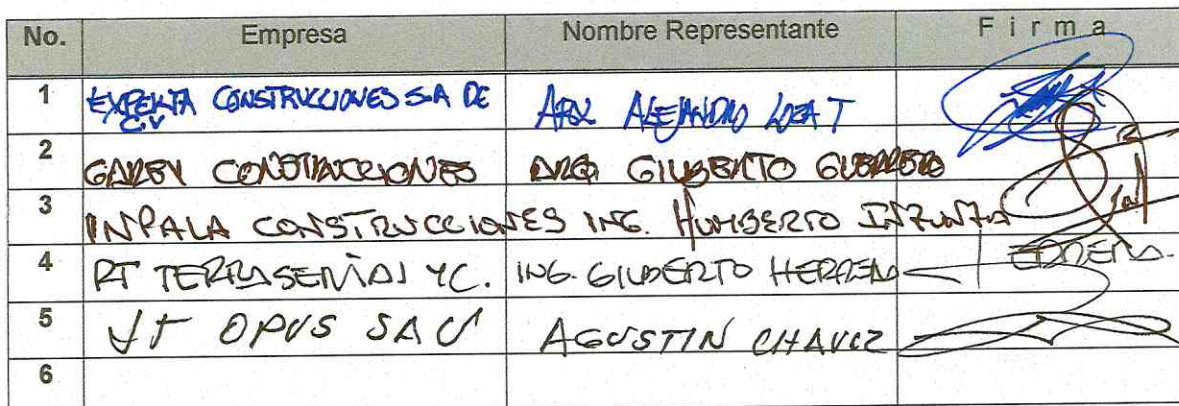 No. Empresa Nombre Representante Firma
1 EXPERTA CONSTRUCCIONES S.A DE CV ARQ ALEJANDRO LOZA T
2 GAREY CONSTRUCCIONES ARQ. GILBERTO GUERRERO
3 INPALA CONSTRUCCIONES ING. HUMBERTO INZUNZA
4 RT ING. GILBERTO HERRERA
5 JT OPUS SA CV AGUSTIN CHAVEZ
6